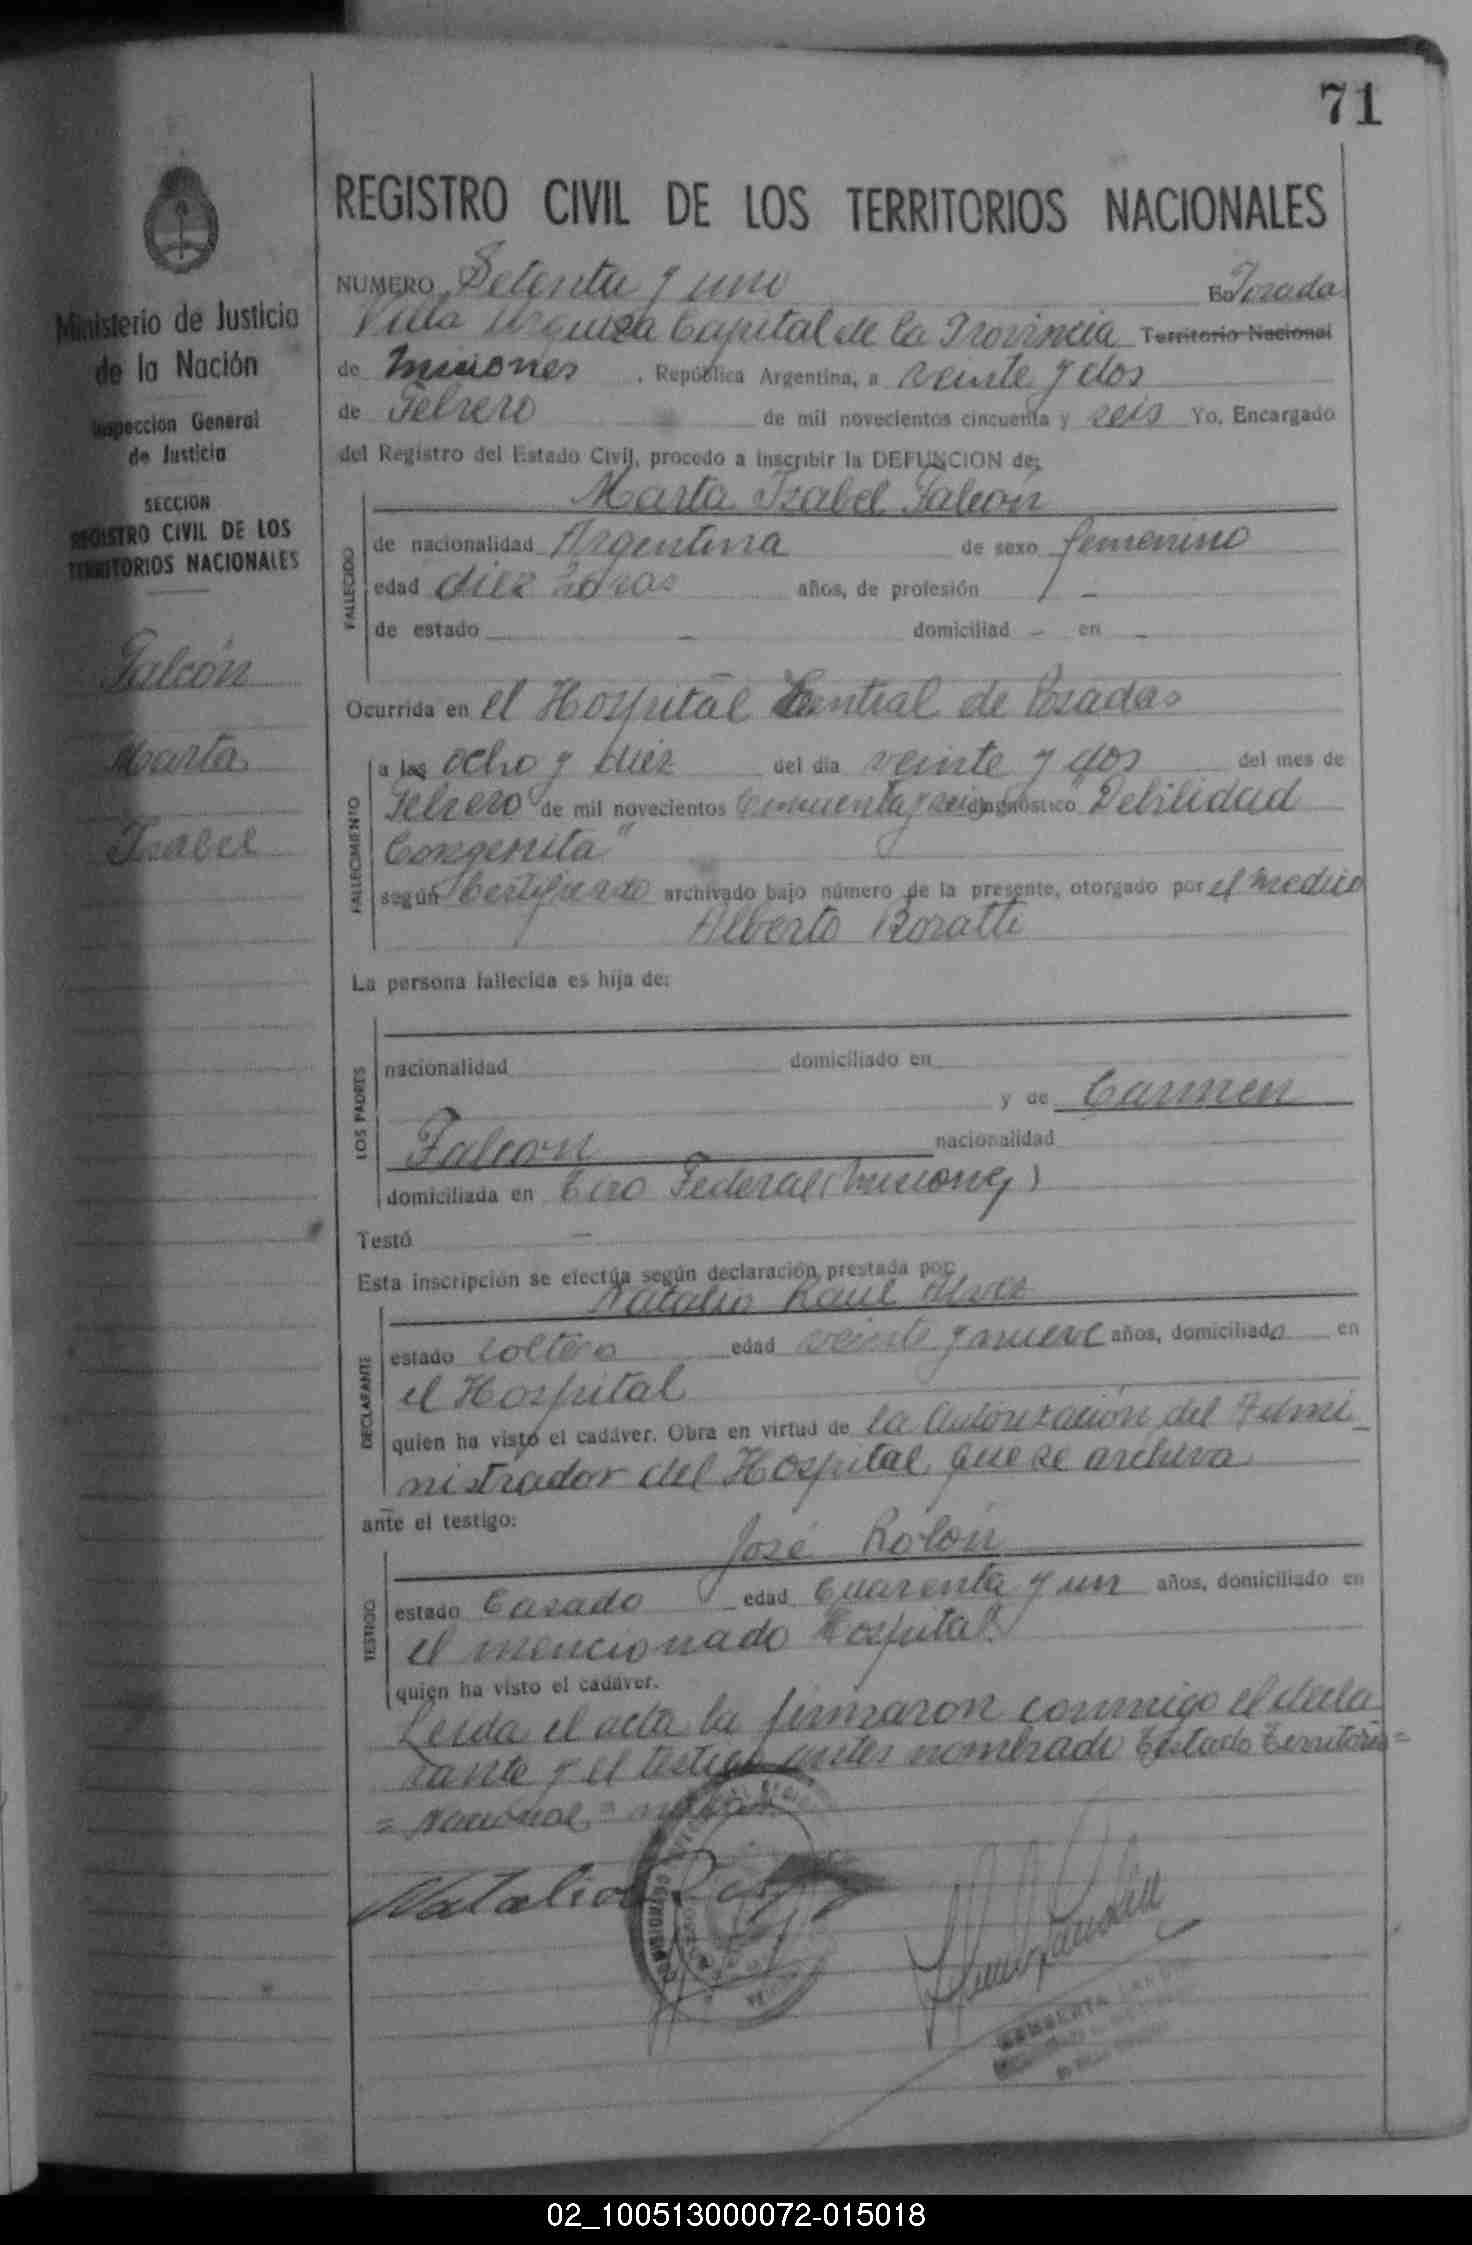 71
REGISTRO CIVIL DE LOS TERRITORIOS NACIONALES
Ministerio de Justicia
de la Nación
Inspección General
de Justicia
SECCION
REGISTRO CIVIL DE LOS
TERRITORIOS NACIONALES
Falcón
Marta
Isabel
NUMERO Setenta y uno En Posadas
Villa Urquiza Capital de la Provincia Territorio Nacional
de Misiones, República Argentina, a veinte y dos
de Febrero de mil novecientos cincuenta y seis Yo, Encargado
del Registro del Estado Civil, procedo a inscribir la DEFUNCION de:
Marta Isabel Falcón
FALLECIDO
de nacionalidad Argentina de sexo femenino
edad diez horas años, de profesión -
de estado - domiciliad - en -
Ocurrida en el Hospital Central de Posadas
FALLECIMIENTO
a las ocho y diez del día veinte y dos del mes de
Febrero de mil novecientos cincuenta y seis diagnóstico "Debilidad
Congenita"
según Certificado archivado bajo número de la presente, otorgado por el medico
Alberto Roratti
La persona fallecida es hija de:
LOS PADRES
nacionalidad domiciliado en
y de Carmen
Falcon nacionalidad
domiciliada en Tiro Federal (Misiones)
Testó -
Esta inscripción se efectúa según declaración prestada por:
Natalio Raul Alvez
DECLARANTE
estado soltero edad veinte y nueve años, domiciliado en
el Hospital
quien ha visto el cadáver. Obra en virtud de la autorización del Admi-
nistrador del Hospital, que se archiva
ante el testigo:
José Rolón
TESTIGO
estado Casado edad Cuarenta y un años, domiciliado en
el mencionado Hospital
quien ha visto el cadáver.
Leida el acta la firmaron conmigo el decla
rante y el testigo antes nombrado Testado Territorio=
= Nacional =
Natalio
02_100513000072-015018